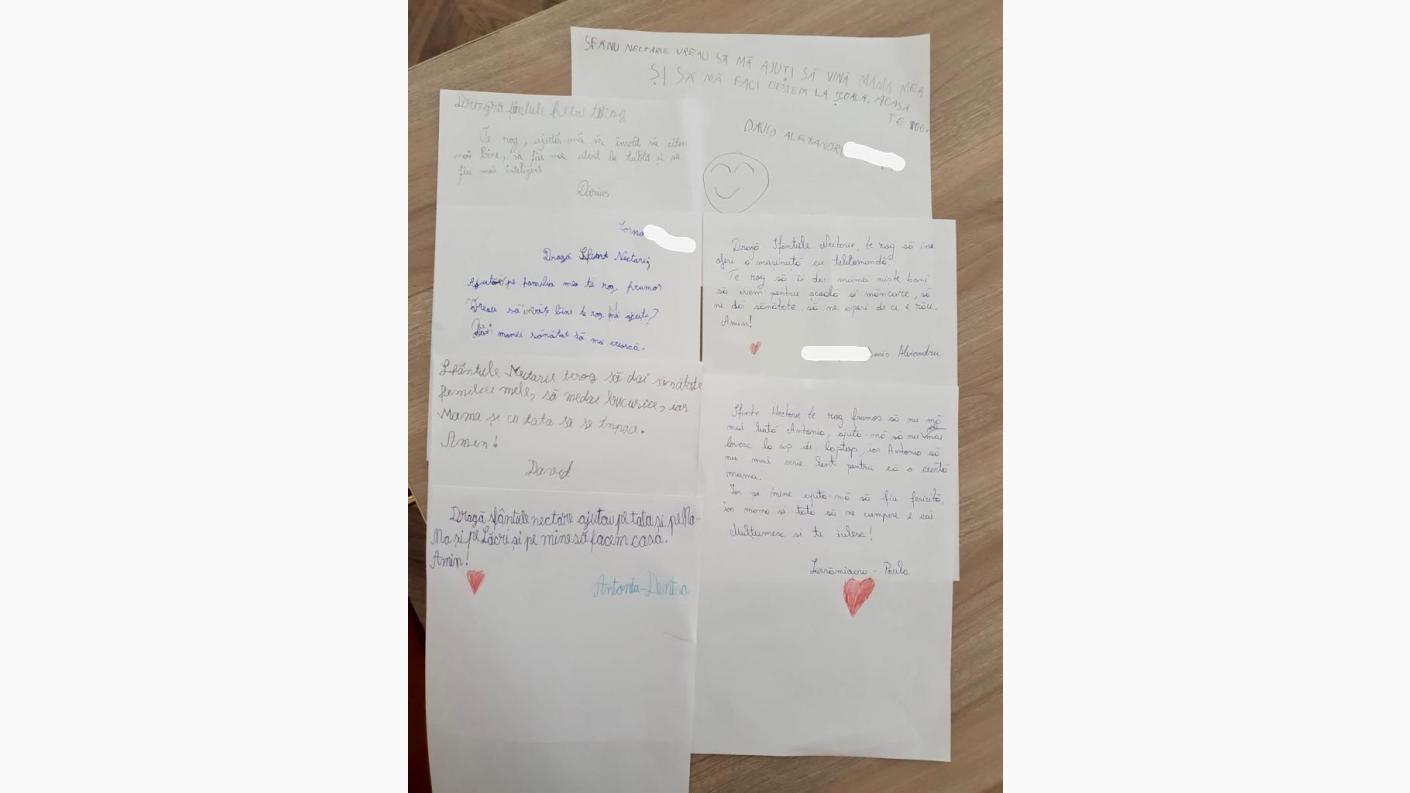 SFÂNU NECTARIE VREAU SĂ MĂ AJUȚI SĂ VINĂ MAMA MEA
ȘI SĂ MĂ FACI DEȘTEM LA ȘCOALĂ. ACASA
TE ROG.
DAVID ALEXANDRU
Te rog, ajută-mă să învăț să citim
mai bine, să fiu mai atent la tablă și să
fiu mai inteligent
Darius
Dragă Sfânt Nectarie,
Ajută pe familia mea te rog frumos
Vreau să învăț bine te rog mă ajuți?
Dăi mamei sănătat să mă crească.
Sfântule Nectarel terog să dai sănătate
familiei mele, să medai bucurie, iar
Mama și cu tata să se împace.
Amen!
David
Dragă sfântule nectare ajutau pe tata și pe Ma-
Ma și pe Lăcri și pe mine să facem casă.
Amin!
Antonia-
Dragă Sfântule Nectarie, te rog să îmi
oferi o mașinuță cu telecomandă.
Te rog să îi dai mamă niște bani
să avem pentru școală și mâncare, să
ne dai sănătate, să ne aperi de ce e rău.
Amin!
Alexandru
Sfinte Nectarie te rog frumos să nu mă
mai bată Antonia, ajută-mă să nu mai
lovesc la cap de laptop, iar Antonia să
nu mai scrie lent pentru că o ceartă
mama.
Iar pe mine ajută-mă să fiu fericită,
iar mama și tata să ne cumpere 2 cai
Mulțumesc și te iubesc!
Lăcrămioara - Paula